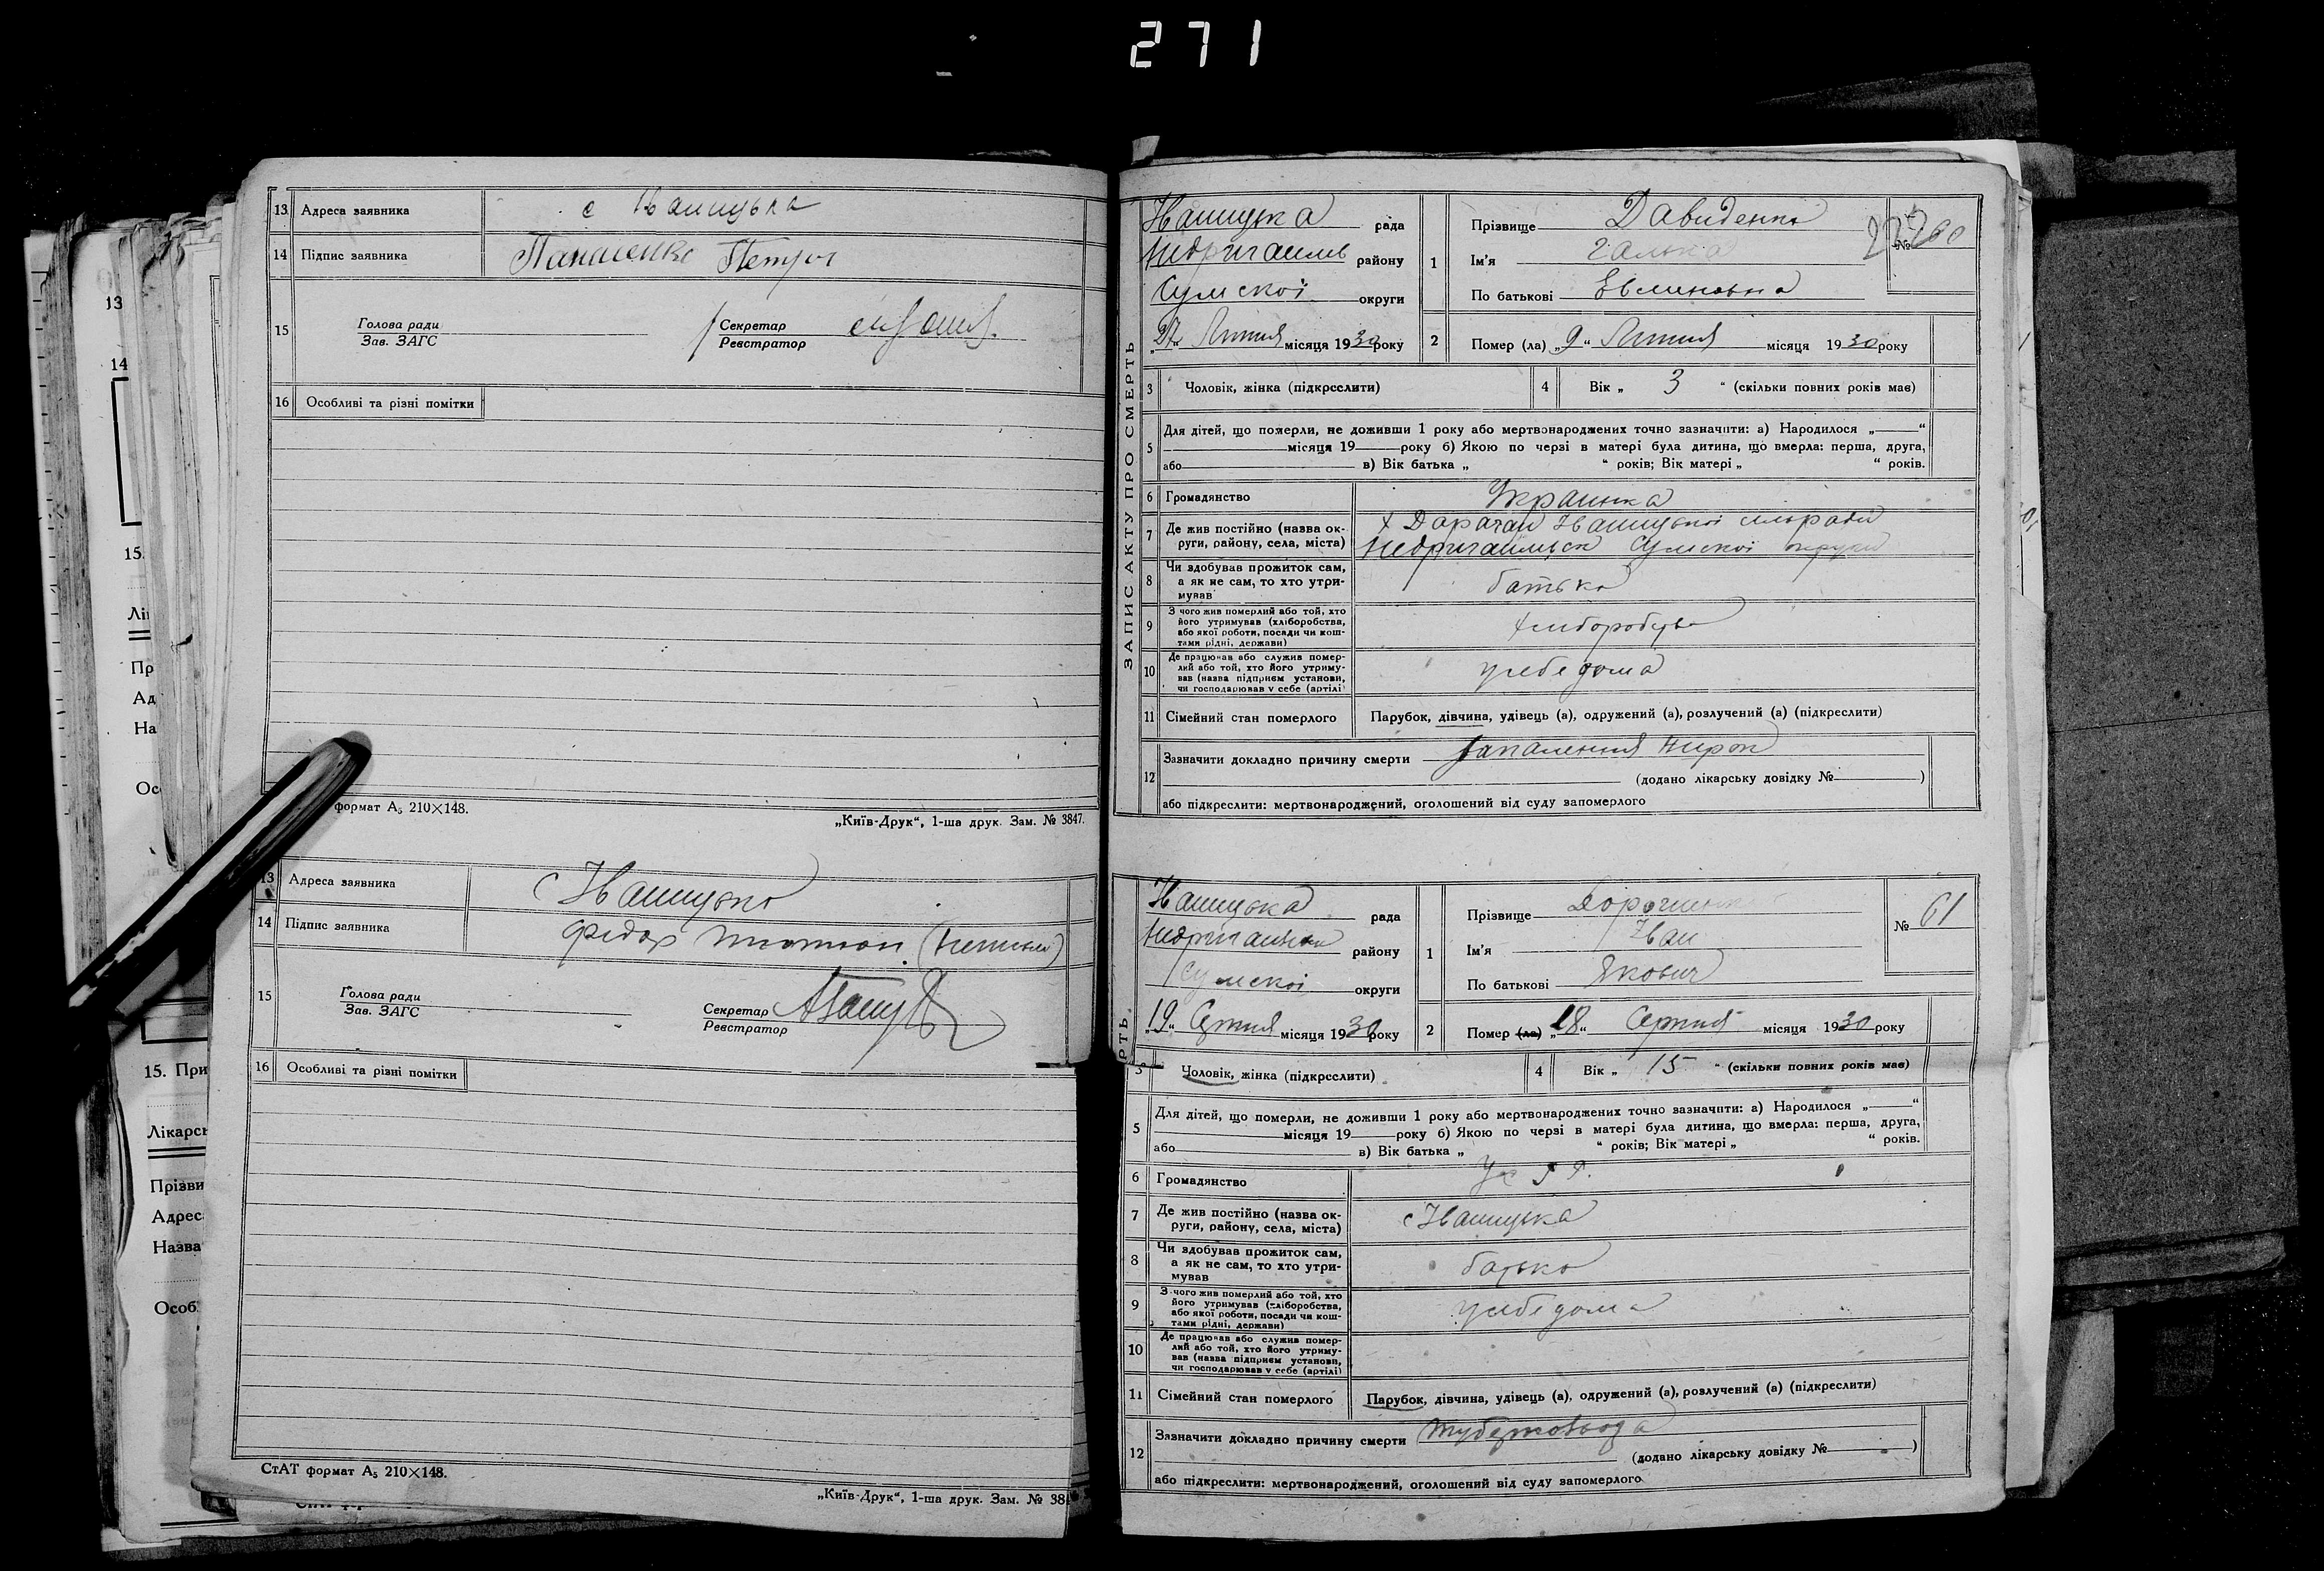 271
13 Адреса заявника с
14 Підпис заявника Панасенко Петро
15 Голова ради
Зав. ЗАГС
Секретар
Реєстратор
16 Особливі та різні помітки
формат А5 210×148.
„Київ-Друк“, 1-ша друк. Зам. № 3847.
13 Адреса заявника с
14 Підпис заявника Федор
15 Голова ради
Зав. ЗАГС
Секретар
Реєстратор
16 Особливі та різні помітки
СтАТ формат А5 210×148.
„Київ-Друк“, 1-ша друк. Зам. № 38
13
14
15.
Лі
Пр
Ад
На
Ос
15. При
Лікарсь
Прізви
Адрес
Назва
Особ
ЗАПИС АКТУ ПРО СМЕРТЬ
рада
району
Сумскої округи
„27“ Липня місяця 1930 року
1 Прізвище Давиденко
Ім'я Галька
По батькові
№ 60
2 Помер (ла) „9“ Липня місяця 1930 року
3 Чоловік, жінка (підкреслити)
4 Вік „ 3 “ (скільки повних років має)
5 Для дітей, що померли, не доживши 1 року або мертвонароджених точно зазначити: а) Народилося „ “
місяця 19 року б) Якою по черзі в матері була дитина, що вмерла: перша, друга,
або в) Вік батька „ “ років; Вік матері „ “ років.
6 Громадянство Украинка
7 Де жив постійно (назва ок-
руги, району, села, міста)
Сумскої округи
8 Чи здобував прожиток сам,
а як не сам, то хто утри-
мував батько
9 З чого жив померлий або той, хто
його утримував (хліборобства,
або якої роботи, посади чи кош-
тами рідні, держави)
10 Де працював або служив помер-
лий або той, хто його утриму-
вав (назва підприєм установи,
чи господарював у себе (артілі) усебе дома
11 Сімейний стан померлого Парубок, дівчина, удівець (а), одружений (а), розлучений (а) (підкреслити)
12 Зазначити докладно причину смерти запалення нирок
(додано лікарську довідку № )
або підкреслити: мертвонароджений, оголошений від суду запомерлого
РТЬ
рада
району
Сумскої округи
„19“ Серпня місяця 1930 року
1 Прізвище
Ім'я Іван
По батькові Якович
№ 61
2 Помер (ла) „18“ Серпня місяця 1930 року
3 Чоловік, жінка (підкреслити)
4 Вік „ 15 “ (скільки повних років має)
5 Для дітей, що померли, не доживши 1 року або мертвонароджених точно зазначити: а) Народилося „ “
місяця 19 року б) Якою по черзі в матері була дитина, що вмерла: перша, друга,
або в) Вік батька „ “ років; Вік матері „ “ років.
6 Громадянство
7 Де жив постійно (назва ок-
руги, району, села, міста) с
8 Чи здобував прожиток сам,
а як не сам, то хто утри-
мував батько
9 З чого жив померлий або той, хто
його утримував (хліборобства,
або якої роботи, посади чи кош-
тами рідні, держави) усебе дома
10 Де працював або служив помер-
лий або той, хто його утриму-
вав (назва підприєм установи,
чи господарював у себе (артілі)
11 Сімейний стан померлого Парубок, дівчина, удівець (а), одружений (а), розлучений (а) (підкреслити)
12 Зазначити докладно причину смерти
(додано лікарську довідку № )
або підкреслити: мертвонароджений, оголошений від суду запомерлого